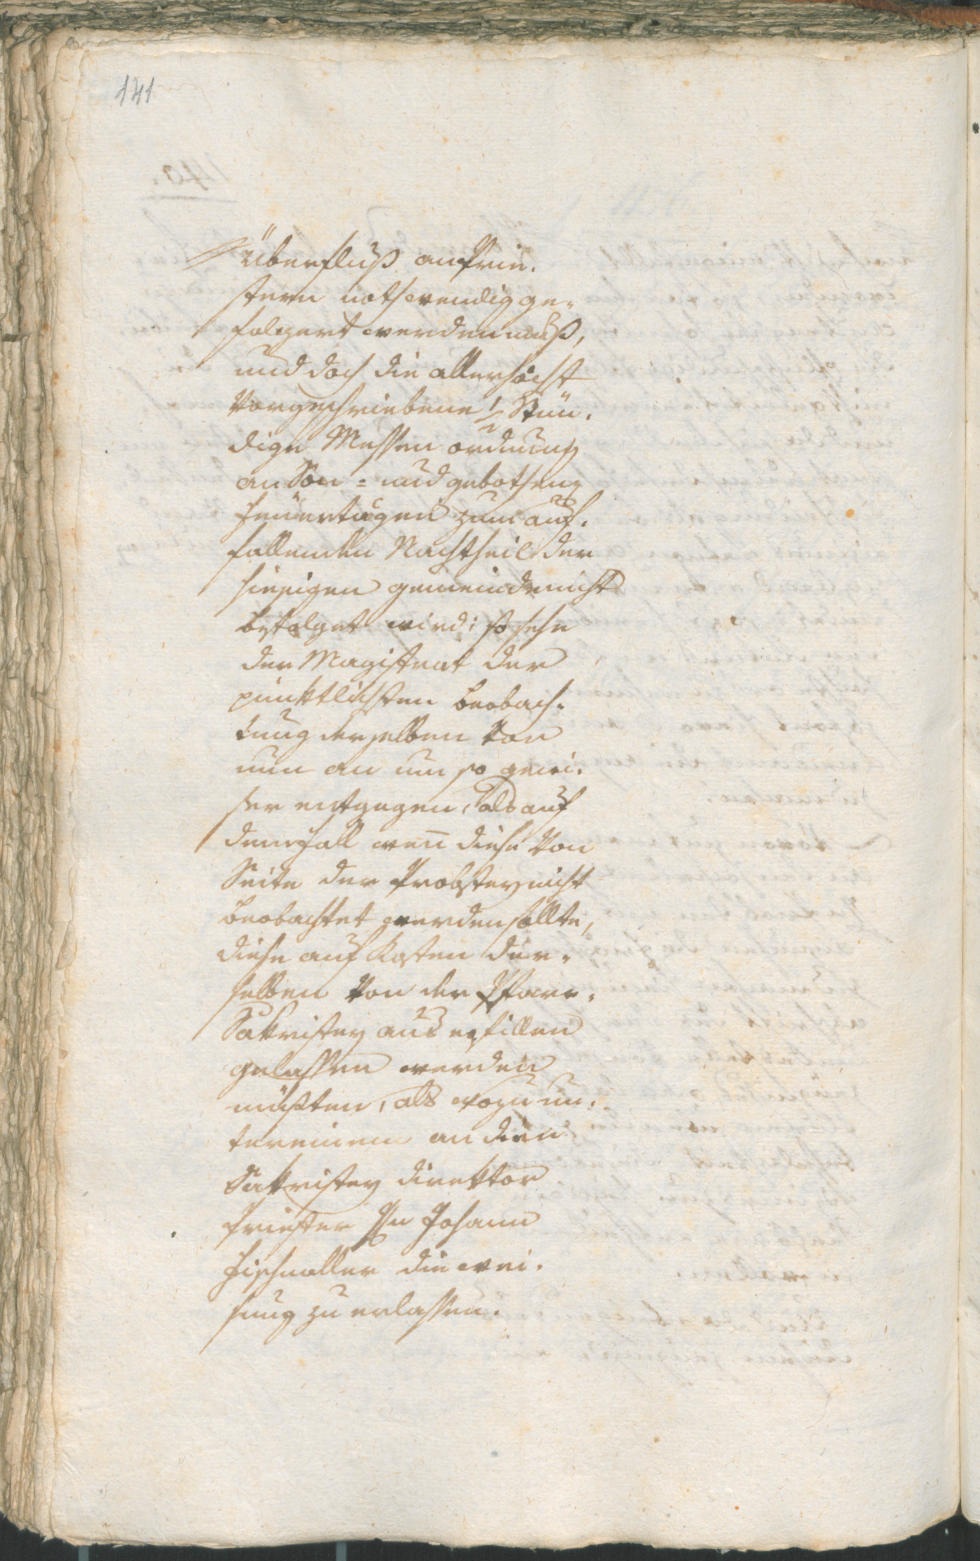 141
Überfluß an Prie¬
stern nothwendig ge¬
folgert werden muß,
und doch die allerhöchst
Vorgeschriebene ½ Stün¬
dige Messen ordnung
an Son- und gebothenen
Feüertägen zum auf¬
fallenden Nachtheil der
hiesigen gemeinde nicht
befolget wird: so sehe
der Magistrat der
pünktlichsten beobach¬
tung derselben Von
nun an um so gewi¬
ßer entgegen, als auf
dem fall wen̄ diese Von
Seite der Probstey nicht
beobachtet werden sollte,
diese auf Kosten der¬
selben Von der Pfarr¬
Sakristey aus
gelassen werden
müßten, als wozu un¬
tereinem an den
Sakristey direktor
Priester Hn Johann
Fischnaller die wei¬
sung zu erlassen.